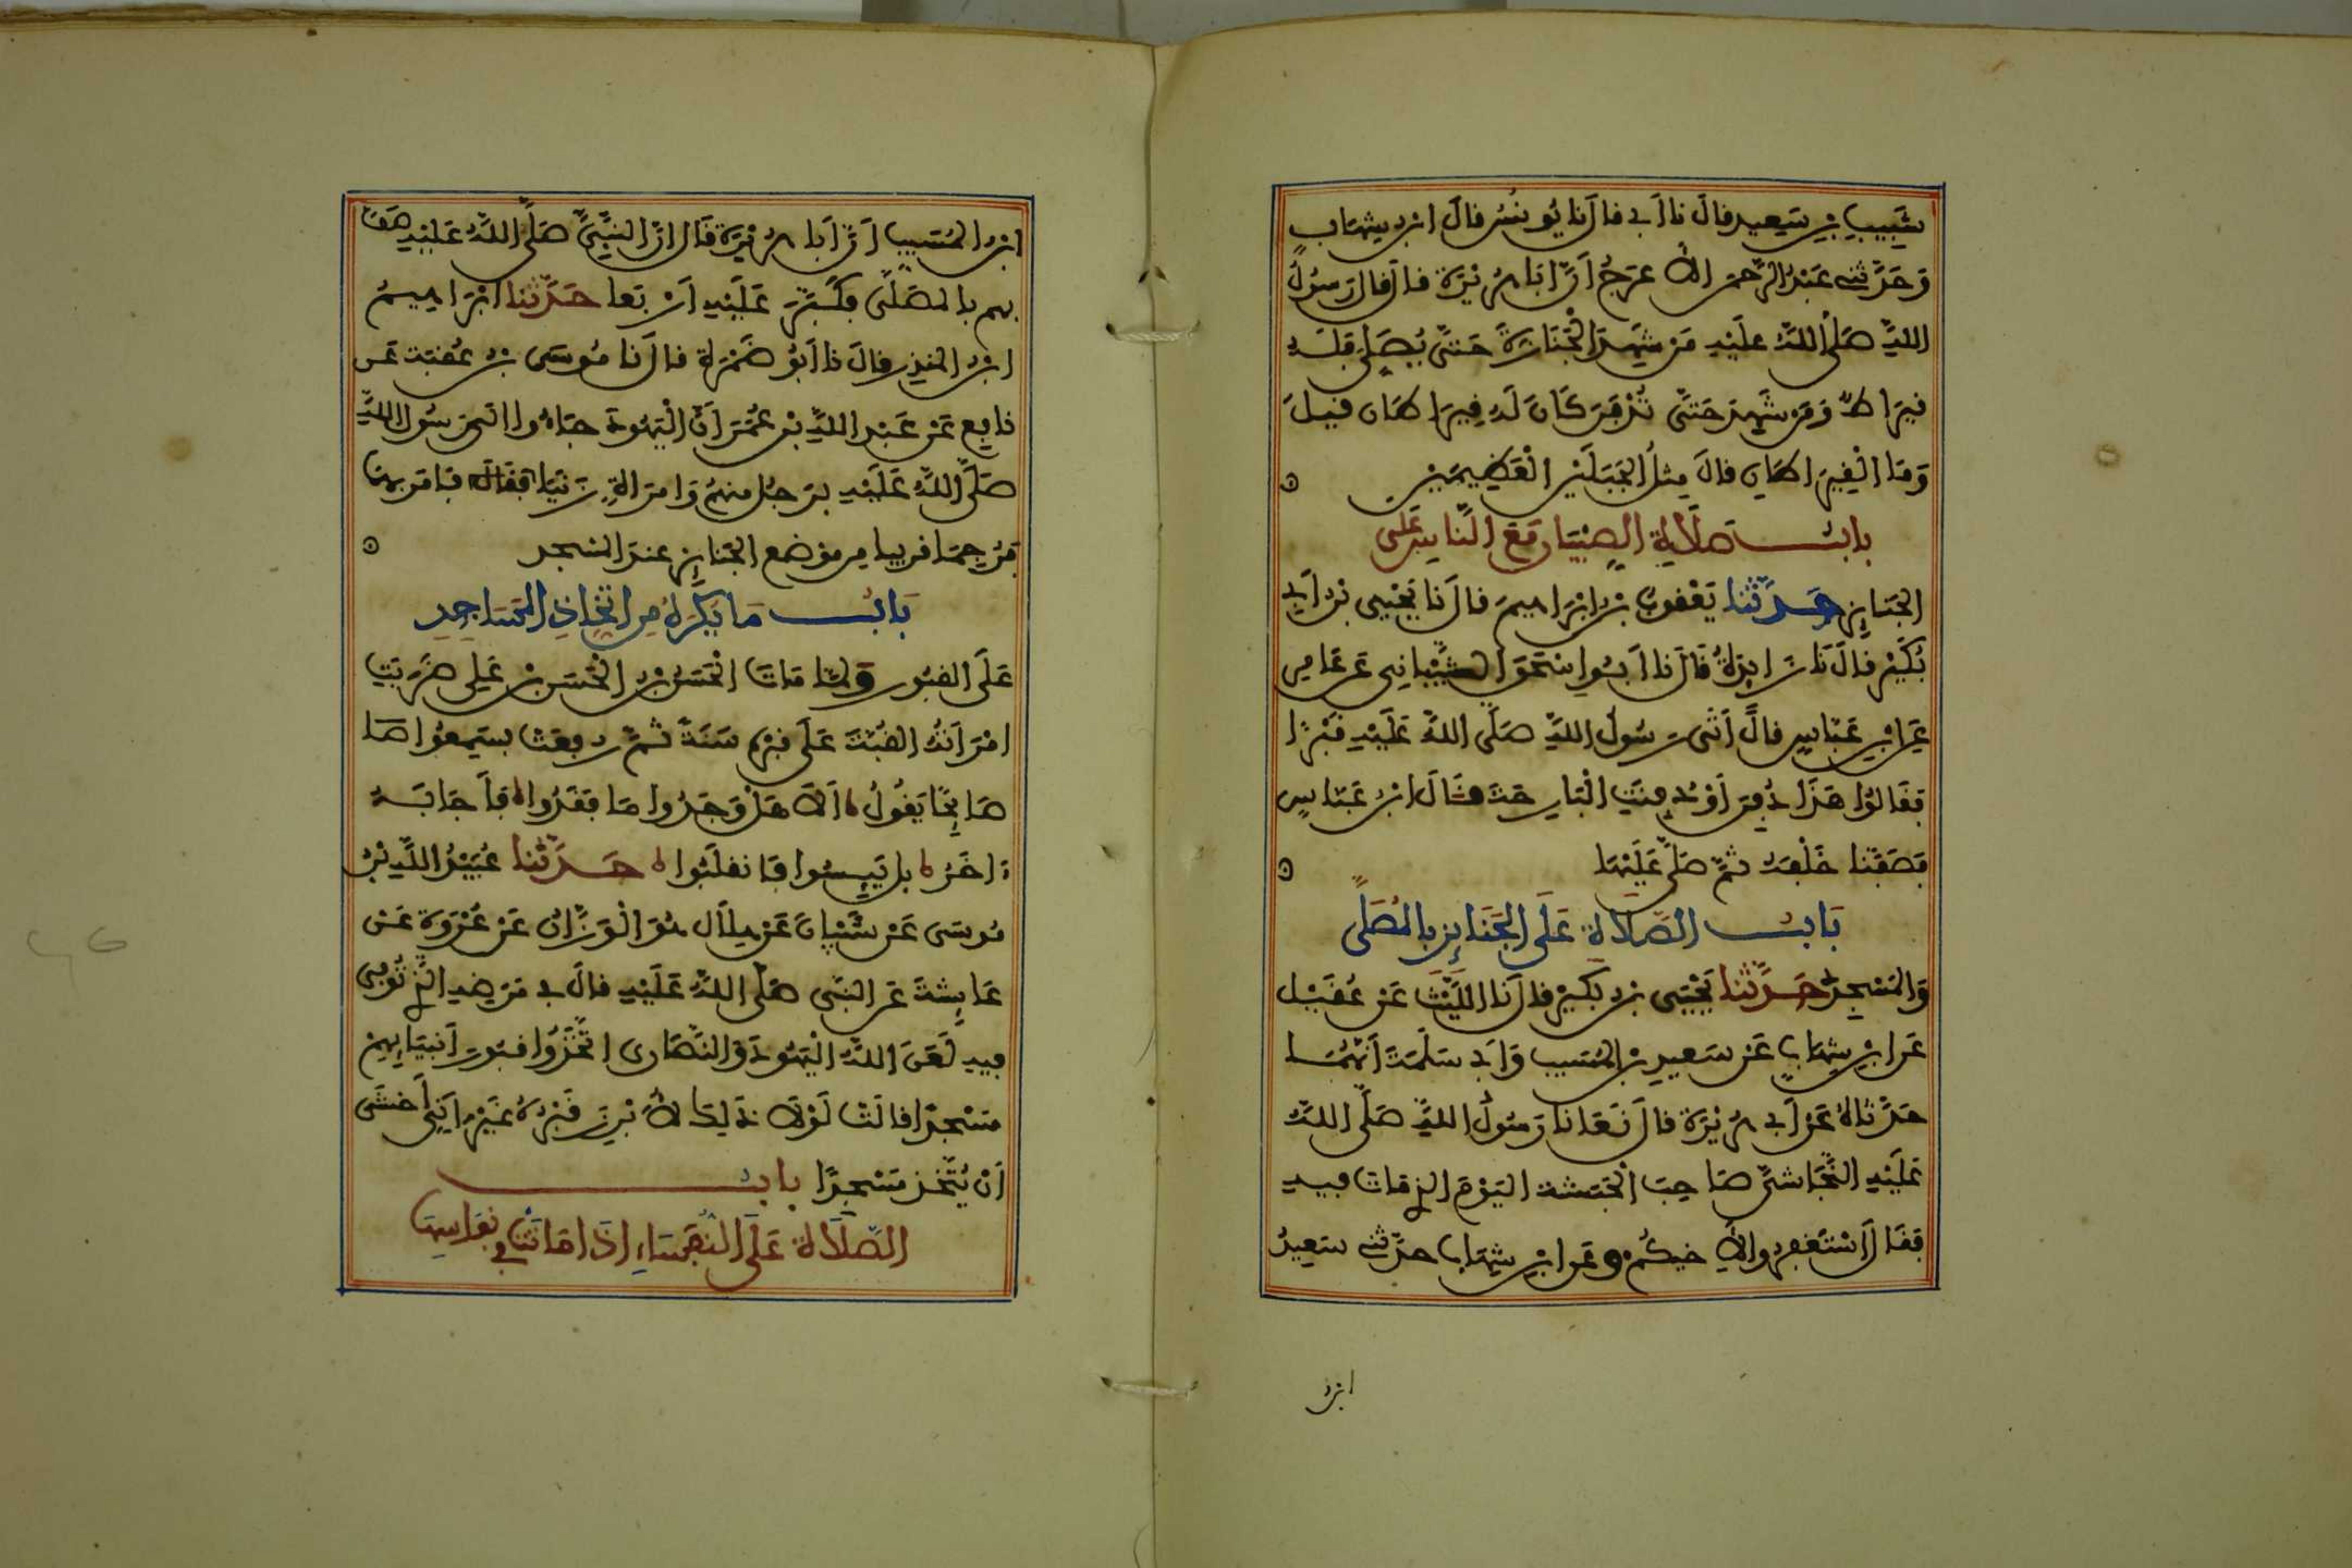 شَبِيبِ بْنِ سَعِيدٍ قالَ نا أَبِي قالَ نا يُونُسُ قالَ ابْنُ شِهَابٍ
وَحَدَّثَنِي عَبْدُ الرَّحْمنِ الأَعْرَجُ أَنَّ أَبَا هُرَيْرَةَ قالَ قالَ رَسُولُ
اللَّهِ صَلَّى اللَّهُ عَلَيْهِ مَنْ شَهِدَ الْجَنَازَةَ حَتَّى يُصَلِّيَ فَلَهُ
قِيرَاطٌ وَمَنْ شَهِدَ حَتَّى تُدْفَنَ كَانَ لَهُ قِيرَاطَانِ قِيلَ
وَمَا الْقِيرَاطَانِ قالَ مِثْلُ الْجَبَلَيْنِ الْعَظِيمَيْنِ
بابُ صَلَاةِ الصِّبْيَانِ مَعَ النَّاسِ عَلَى
الجَنَايِزِ حَدَّثَنَا يَعْقُوبُ بْنُ إِبْرَاهِيمَ قالَ نَا يَحْيَى بْنُ أَبِي
بُكَيْرٍ قالَ نَا زَايِدَةُ قَالَ نَا أَبُو إِسْحَقَ الشَّيْبَانِي عَنْ عَامِرٍ
عَنِ ابْنِ عَبَّاسٍ قالَ أَتَى رَسُولُ اللَّهِ صَلَّى اللَّهُ عَلَيْهِ قَبْرًا
فَقَالُوا هَذَا دُفِنَ أَوْ دُفِنَتِ الْبَارِحَةَ قَالَ ابْنُ عَبَّاسٍ
فَصَفَّنَا خَلْفَهُ ثُمَّ صَلَّى عَلَيْهَا
بَابُ الصَّلَاةِ عَلَى الجَنَايِزِ بِالمُصَلَّى
وَالمَسْجِدِ حَدَّثَنَا يَحْيَى بْنُ بُكَيْرٍ قالَ نَا اللَّيْثُ عَنْ عُقَيْلٍ
عَنِ ابْنِ شِهَابٍ عَنْ سَعِيدِ بْنِ المُسَيب وَأَبِي سَلَمَةَ أَنَّهُمَا
حَدَّثَاهُ عَنْ أَبِي هُرَيْرَةَ قالَ نَعَى لنَا رَسُولُ اللَّهِ صَلَّى اللَّهُ
عَلَيْهِ النَّجَاشِيَّ صَاحِبَ الْحَبَشَةِ الْيَوْمَ الذِي مَاتَ فِيهِ
فَقَالَ اسْتَغْفِرُوا لأَخِيكُمْ وعَنِ ابْنِ شِهَابٍ حَدَّثَنِي سَعِيدُ
ابْنُ
ابْنُ المُسَيب أَنَّ أَبَا هُرَيْرَةَ قَالَ إِنَّ النَّبِيَّ صَلَّى اللَّهُ عَلَيْهِ صَفَّ
بِهِمْ بِالمُصَلَّى فَكَبَّرَ عَلَيْهِ أَرْبَعا حَدَّثَنَا إِبْرَاهِيمُ
ابْنُ المُنْذِرِ قالَ نا أَبُو ضَمْرَةَ قالَ نَا مُوسَى بْنُ عُقْبَةَ عَنْ
نَافِعٍ عَنْ عَبْدِ اللَّهِ بْنِ عُمَرَ أَنَّ الْيَهُودَ جَاءُوا إِلَى رَسُولِ اللَّهِ
صَلَّى اللَّهُ عَلَيْهِ بِرَجُلٍ مِنْهُمْ وَامْرَأَةٍ زَنَيَا فَأَمَرَ بِهِمَا
فَرُجِمَا قَرِيبا مِن مَوْضِعِ الجَنَايِزِ عِنْدَ المَسْجِدِ
بَابُ مَا يُكْرَهُ مِنِ اتِّخَاذِ المَسَاجِدِ
عَلَى القُبُورِ وَلَمَّا مَاتَ الْحَسَنُ بْنُ الْحَسَنِ بْنِ عَلِي ضَرَبَتِ
امْرَأَتُهُ القُبَّةَ عَلَى قَبْرِهِ سَنَةً ثُمَّ رفعَتْ فسَمِعُوا صَا
صَايِحًا يَقُولُ أَلَا هَلْ وَجَدُوا مَا فَقَدُوا فَأَجَابَهُ
ءَاخَرُ بَلْ يَيِسُوا فَانْقَلَبُوا حَدَّثَنَا عُبَيْدُ اللَّهِ بْنُ
مُوسَى عَنْ شَيْبَانَ عَنْ هِلَالٍ هُوَ الْوَزَّانُ عَنْ عُرْوَةَ عَنْ
عَايِشَةَ عَنِ النَّبِي صَلَّى اللَّهُ عَلَيْهِ قالَ فِي مَرَضِهِ الَّذِي تُوُفِّي
فِيهِ لَعَنَ اللَّهُ الْيَهُودَ وَالنَّصَارَى اتَّخَذُوا قُبُورَ أَنْبِيَايِهِمْ
مَسْجِدًا قالَتْ لَوْلَا ذَلِكَ لأُبْرِزَ قَبْرُهُ غَيْرَ أَنِّي أَخْشَى
أَنْ يُتَّخَذَ مَسْجِدًا بابُ
الصَّلَاةِ عَلَى النُّفَسَاءِ إِذَا مَاتَتْ فِي نِفَاسِهَا